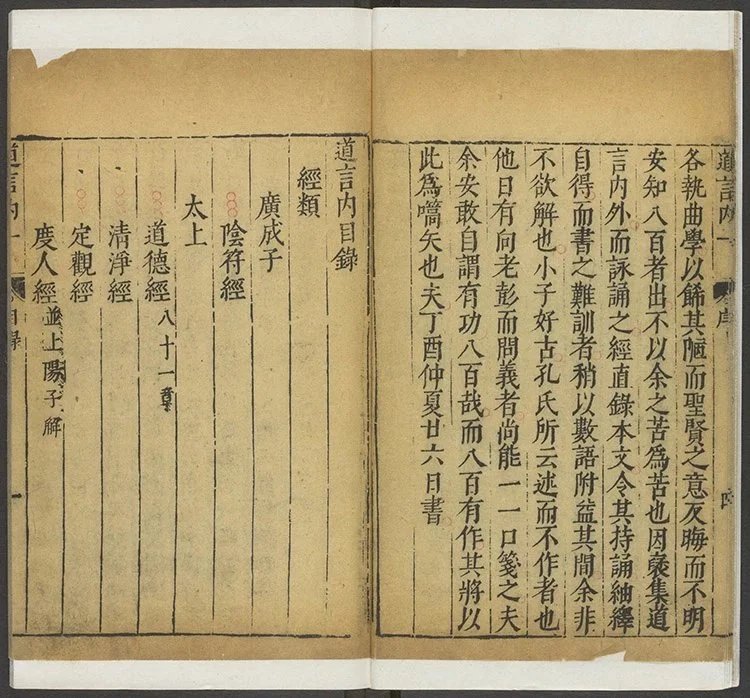 各執曲學以餙其陋而聖賢之意反晦而不明
安知八百者出不以余之苦爲苦也因裒集道
言内外而詠誦之經直錄本文令其持誦紬繹
自得而書之難訓者稍以數語附益其間余非
不欲解也小子好古孔氏所云述而不作者也
他日有向老彭而問義者尚能一一口箋之夫
余安敢自謂有功八百哉而八百有作其將以
此爲嚆矢也夫丁酉仲夏廿六日書
道言内一
序
四
道言内目錄
經類
廣成子
陰符經
太上
道德經八十一章
清淨經
定觀經
度人經並上陽子解
道言内一
目錄
一